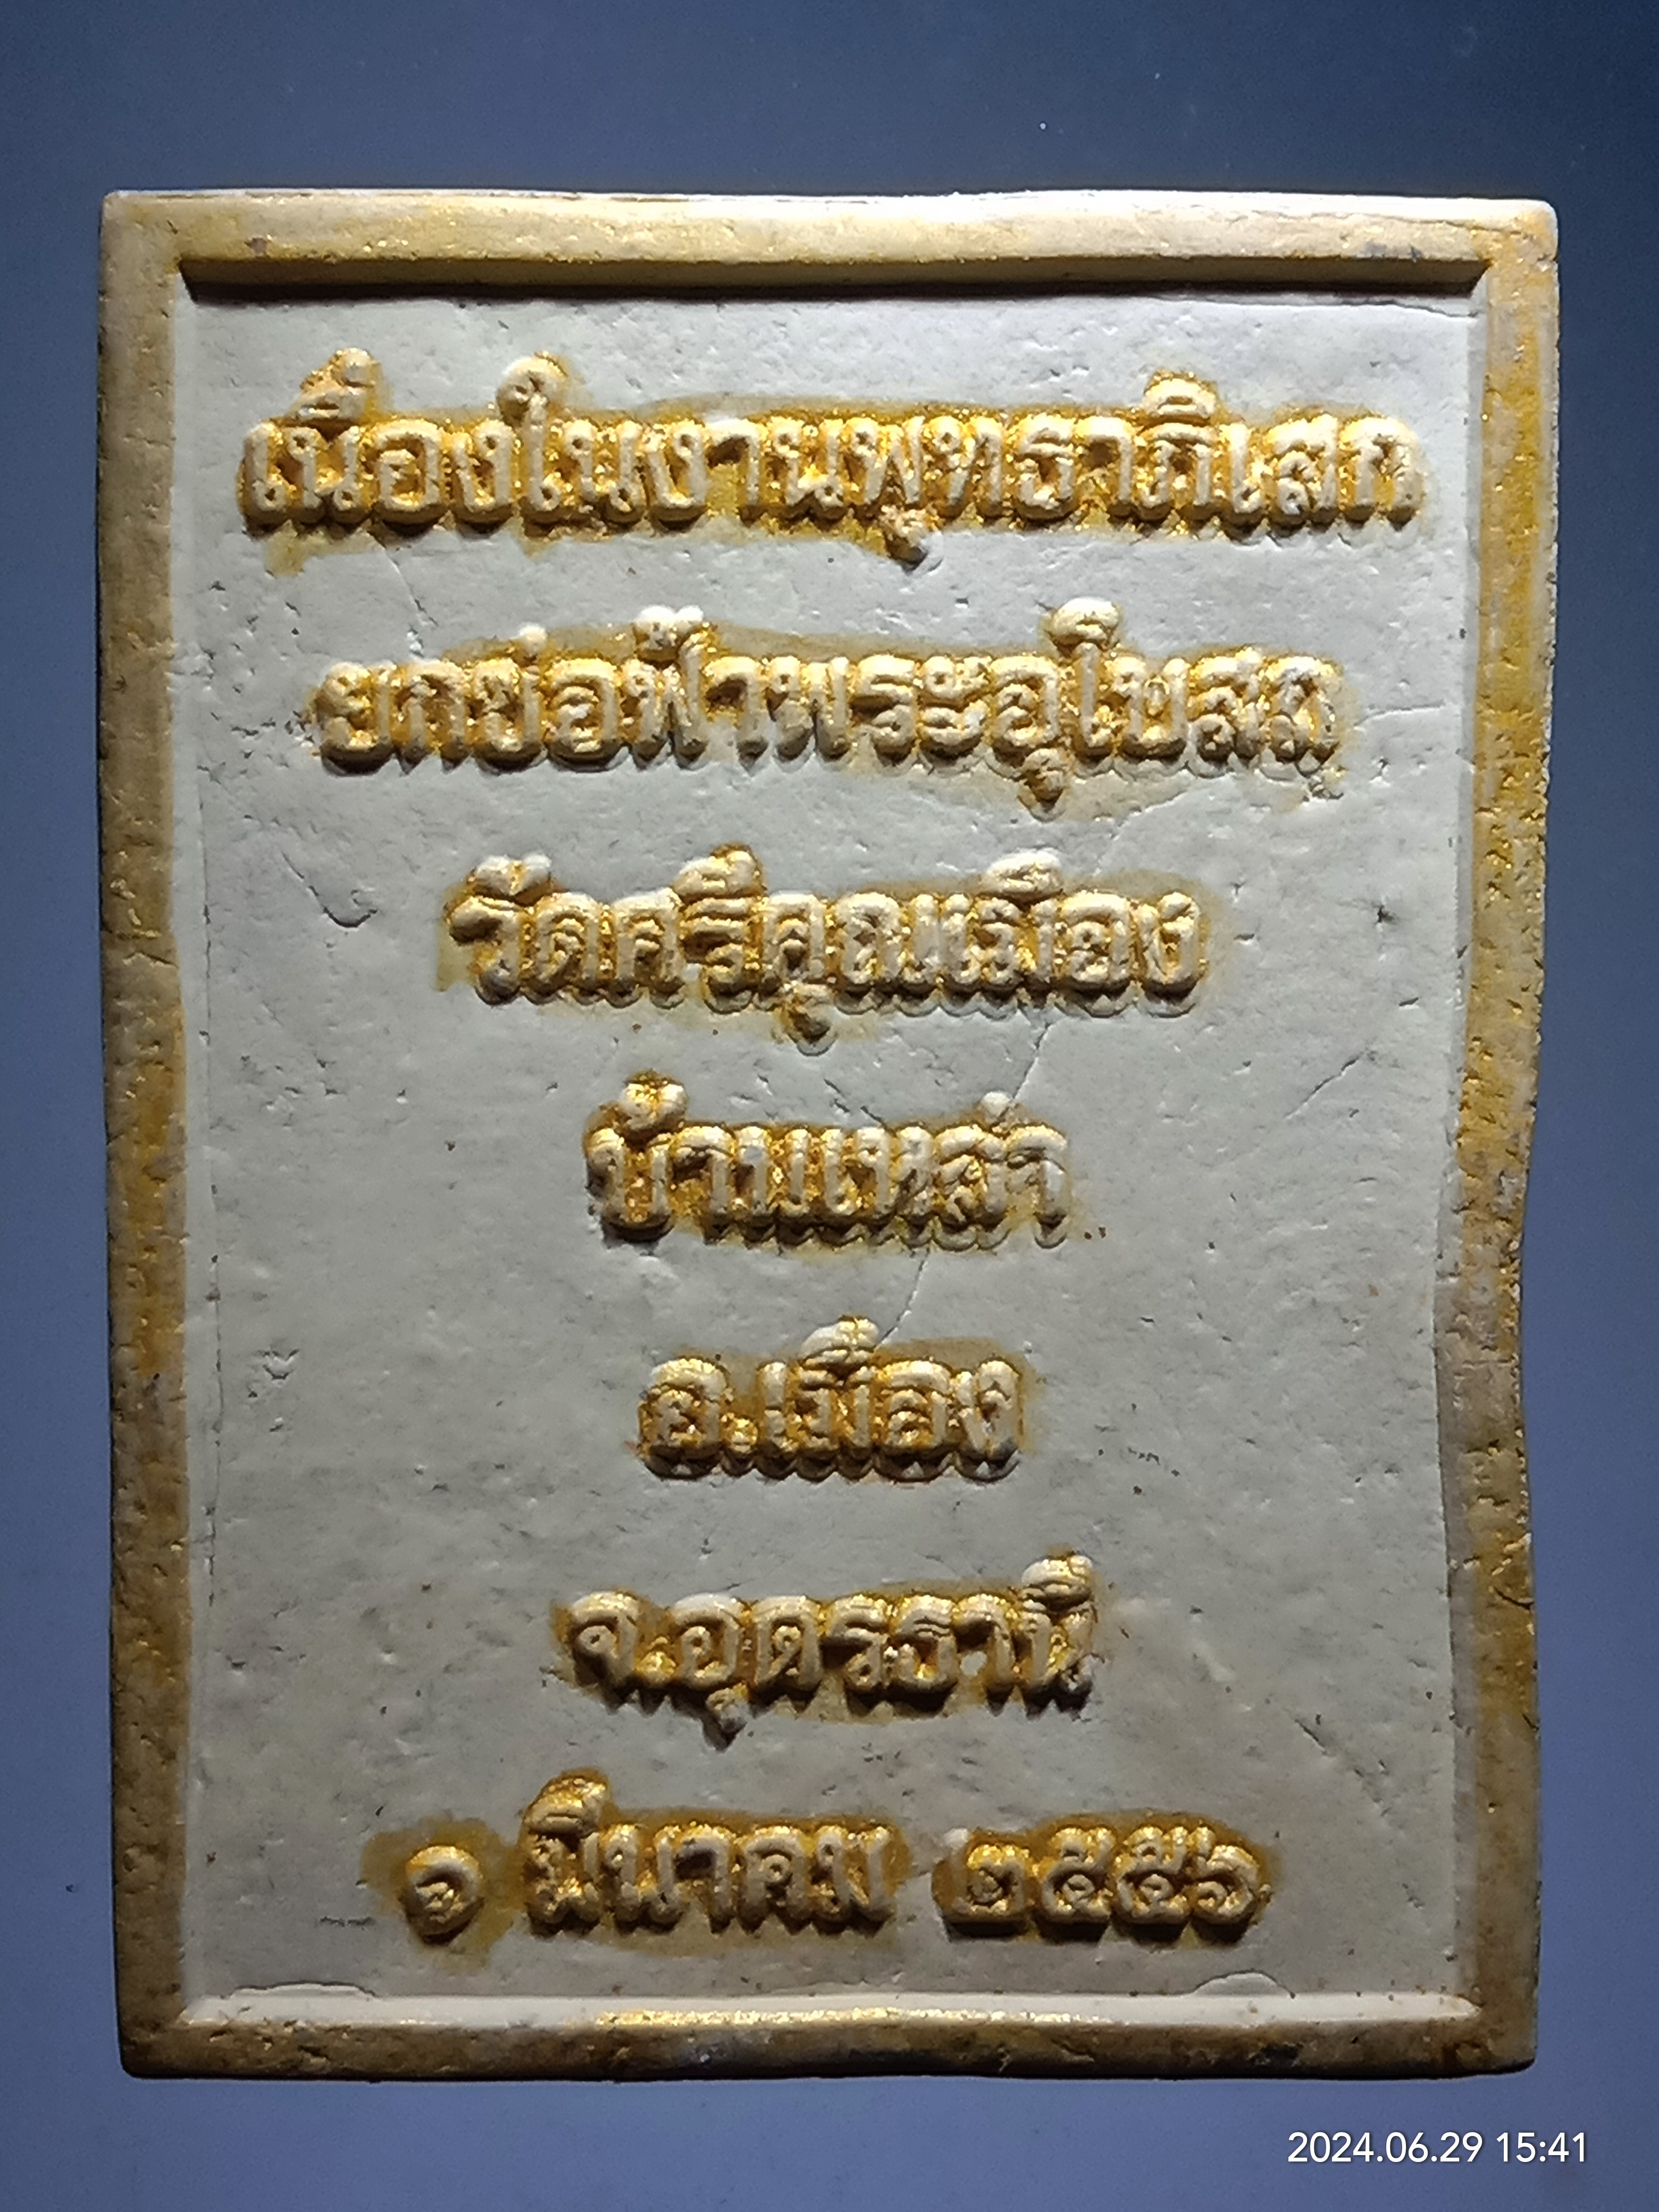 เนื่องในงานพุทธาภิเสก
ยกช่อฟ้าพระอุโบสถ
วัดศรีคุณเมือง
บ้านเหล่า
อ.เมือง
จ.อุดรธานี
๑ มีนาคม ๒๕๕๖
2024.06.29 15:41